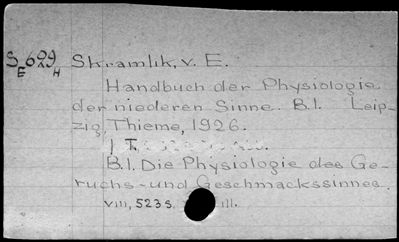 S_E 629_H Skramlik, v. E.
Handbuch der Physiologie
der niederen Sinne. B.I. Leip-
zig, Thieme, 1926.
B.I. Die Physiologie des Ge-
ruchs- und Geschmackssinnes.
VIII, 523 S. Ill.